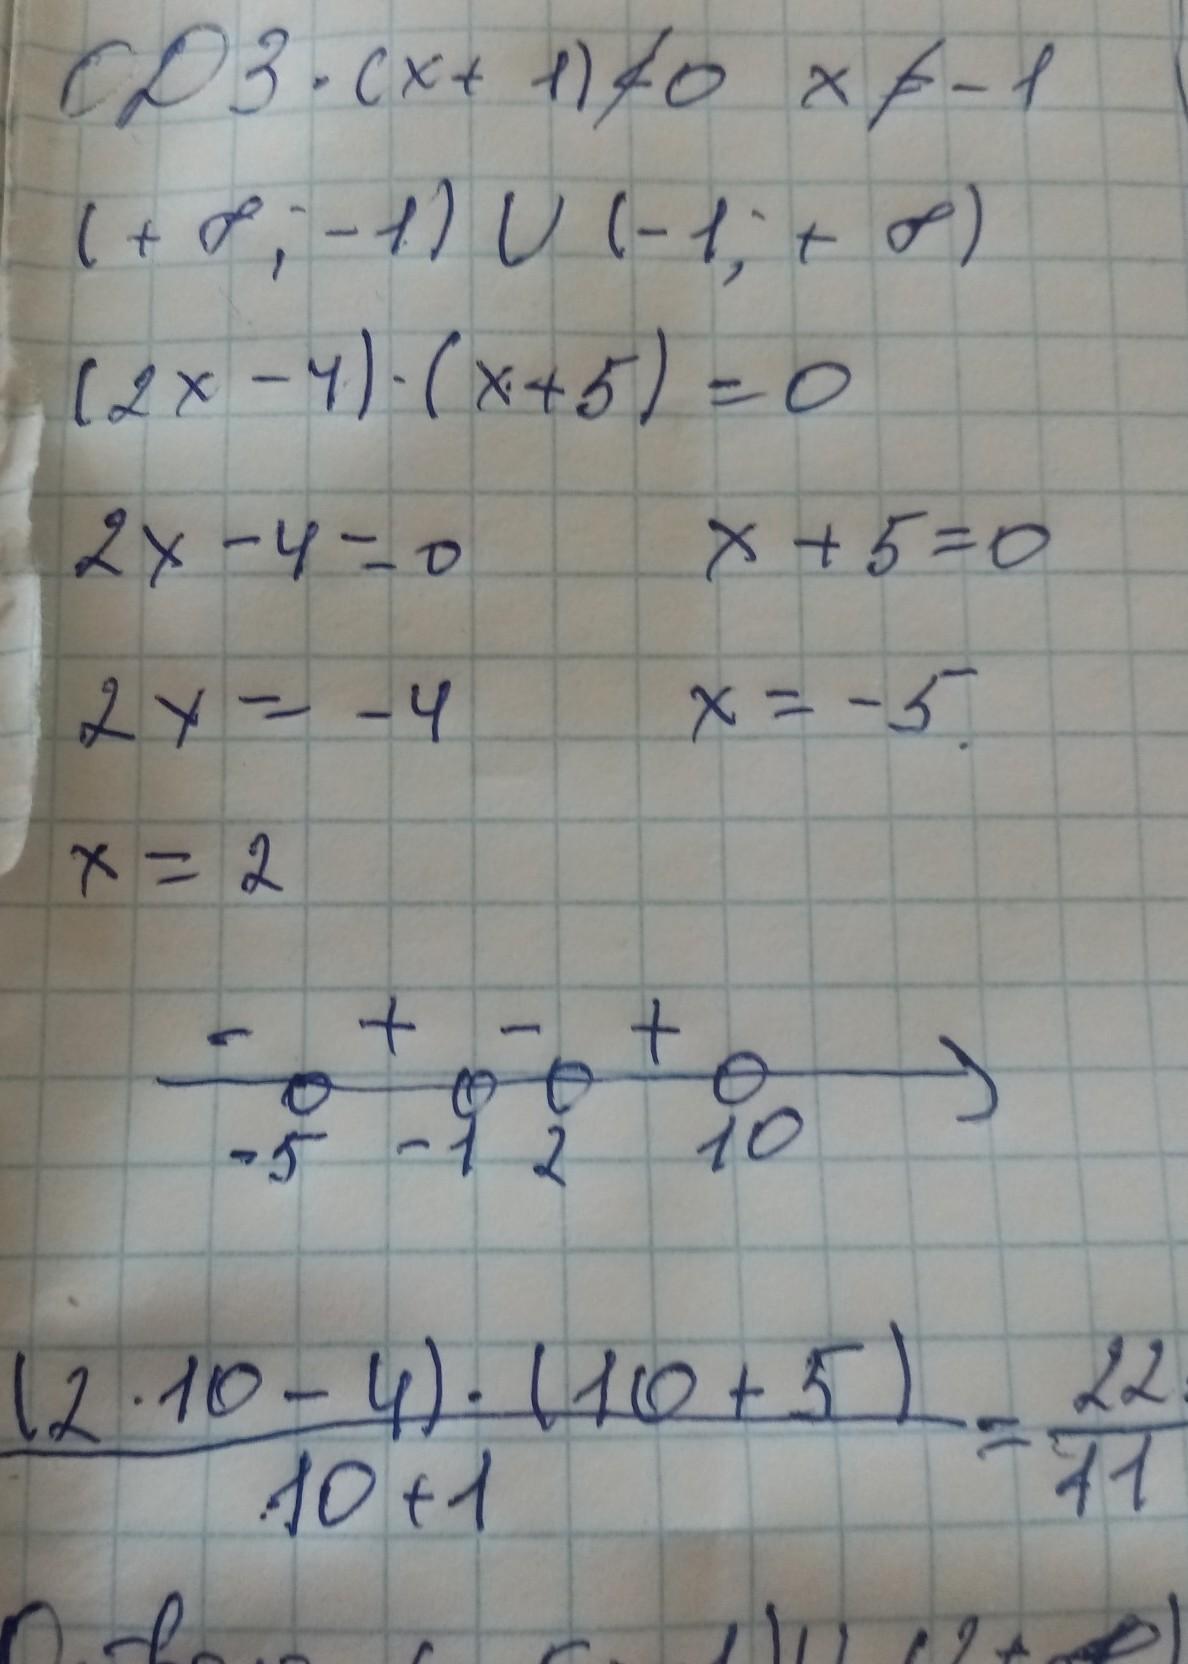 ОДЗ. (x + 1) ≠ 0 x ≠ -1
(+∞; -1) ∪ (-1; +∞)
(2x - 4) · (x + 5) = 0
2x - 4 = 0 x + 5 = 0
2x = -4 x = -5.
x = 2
- + - +
-5 -1 2 10
(2 · 10 - 4) · (10 + 5) = 22
10 + 1 11